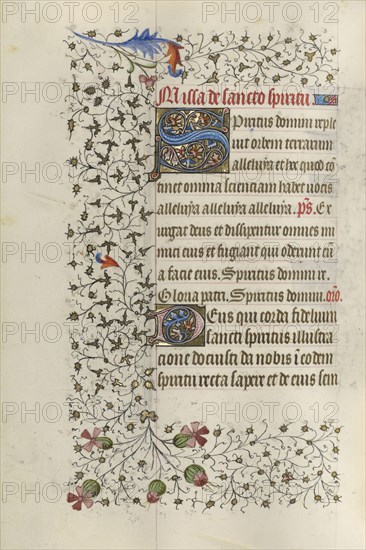 Missa de sancto spiritu.
Spiritus domini reple
uit orbem terrarum
alleluya et hoc quod cō
tinet omnia scienciam habet uocis
alleluya alleluya alleluya. p̄s. Ex
urgat deus et dissipentur omnes ini
mici eius et fugiant qui oderunt eū
a facie eius. Spiritus domini re.
Gloria patri. Spiritus domini. oro.
Deus qui corda fidelium
sancti spiritus illustra
cione docuisti da nobis ī eodem
spiritu recta sapere et de eius sem
PHOTO12